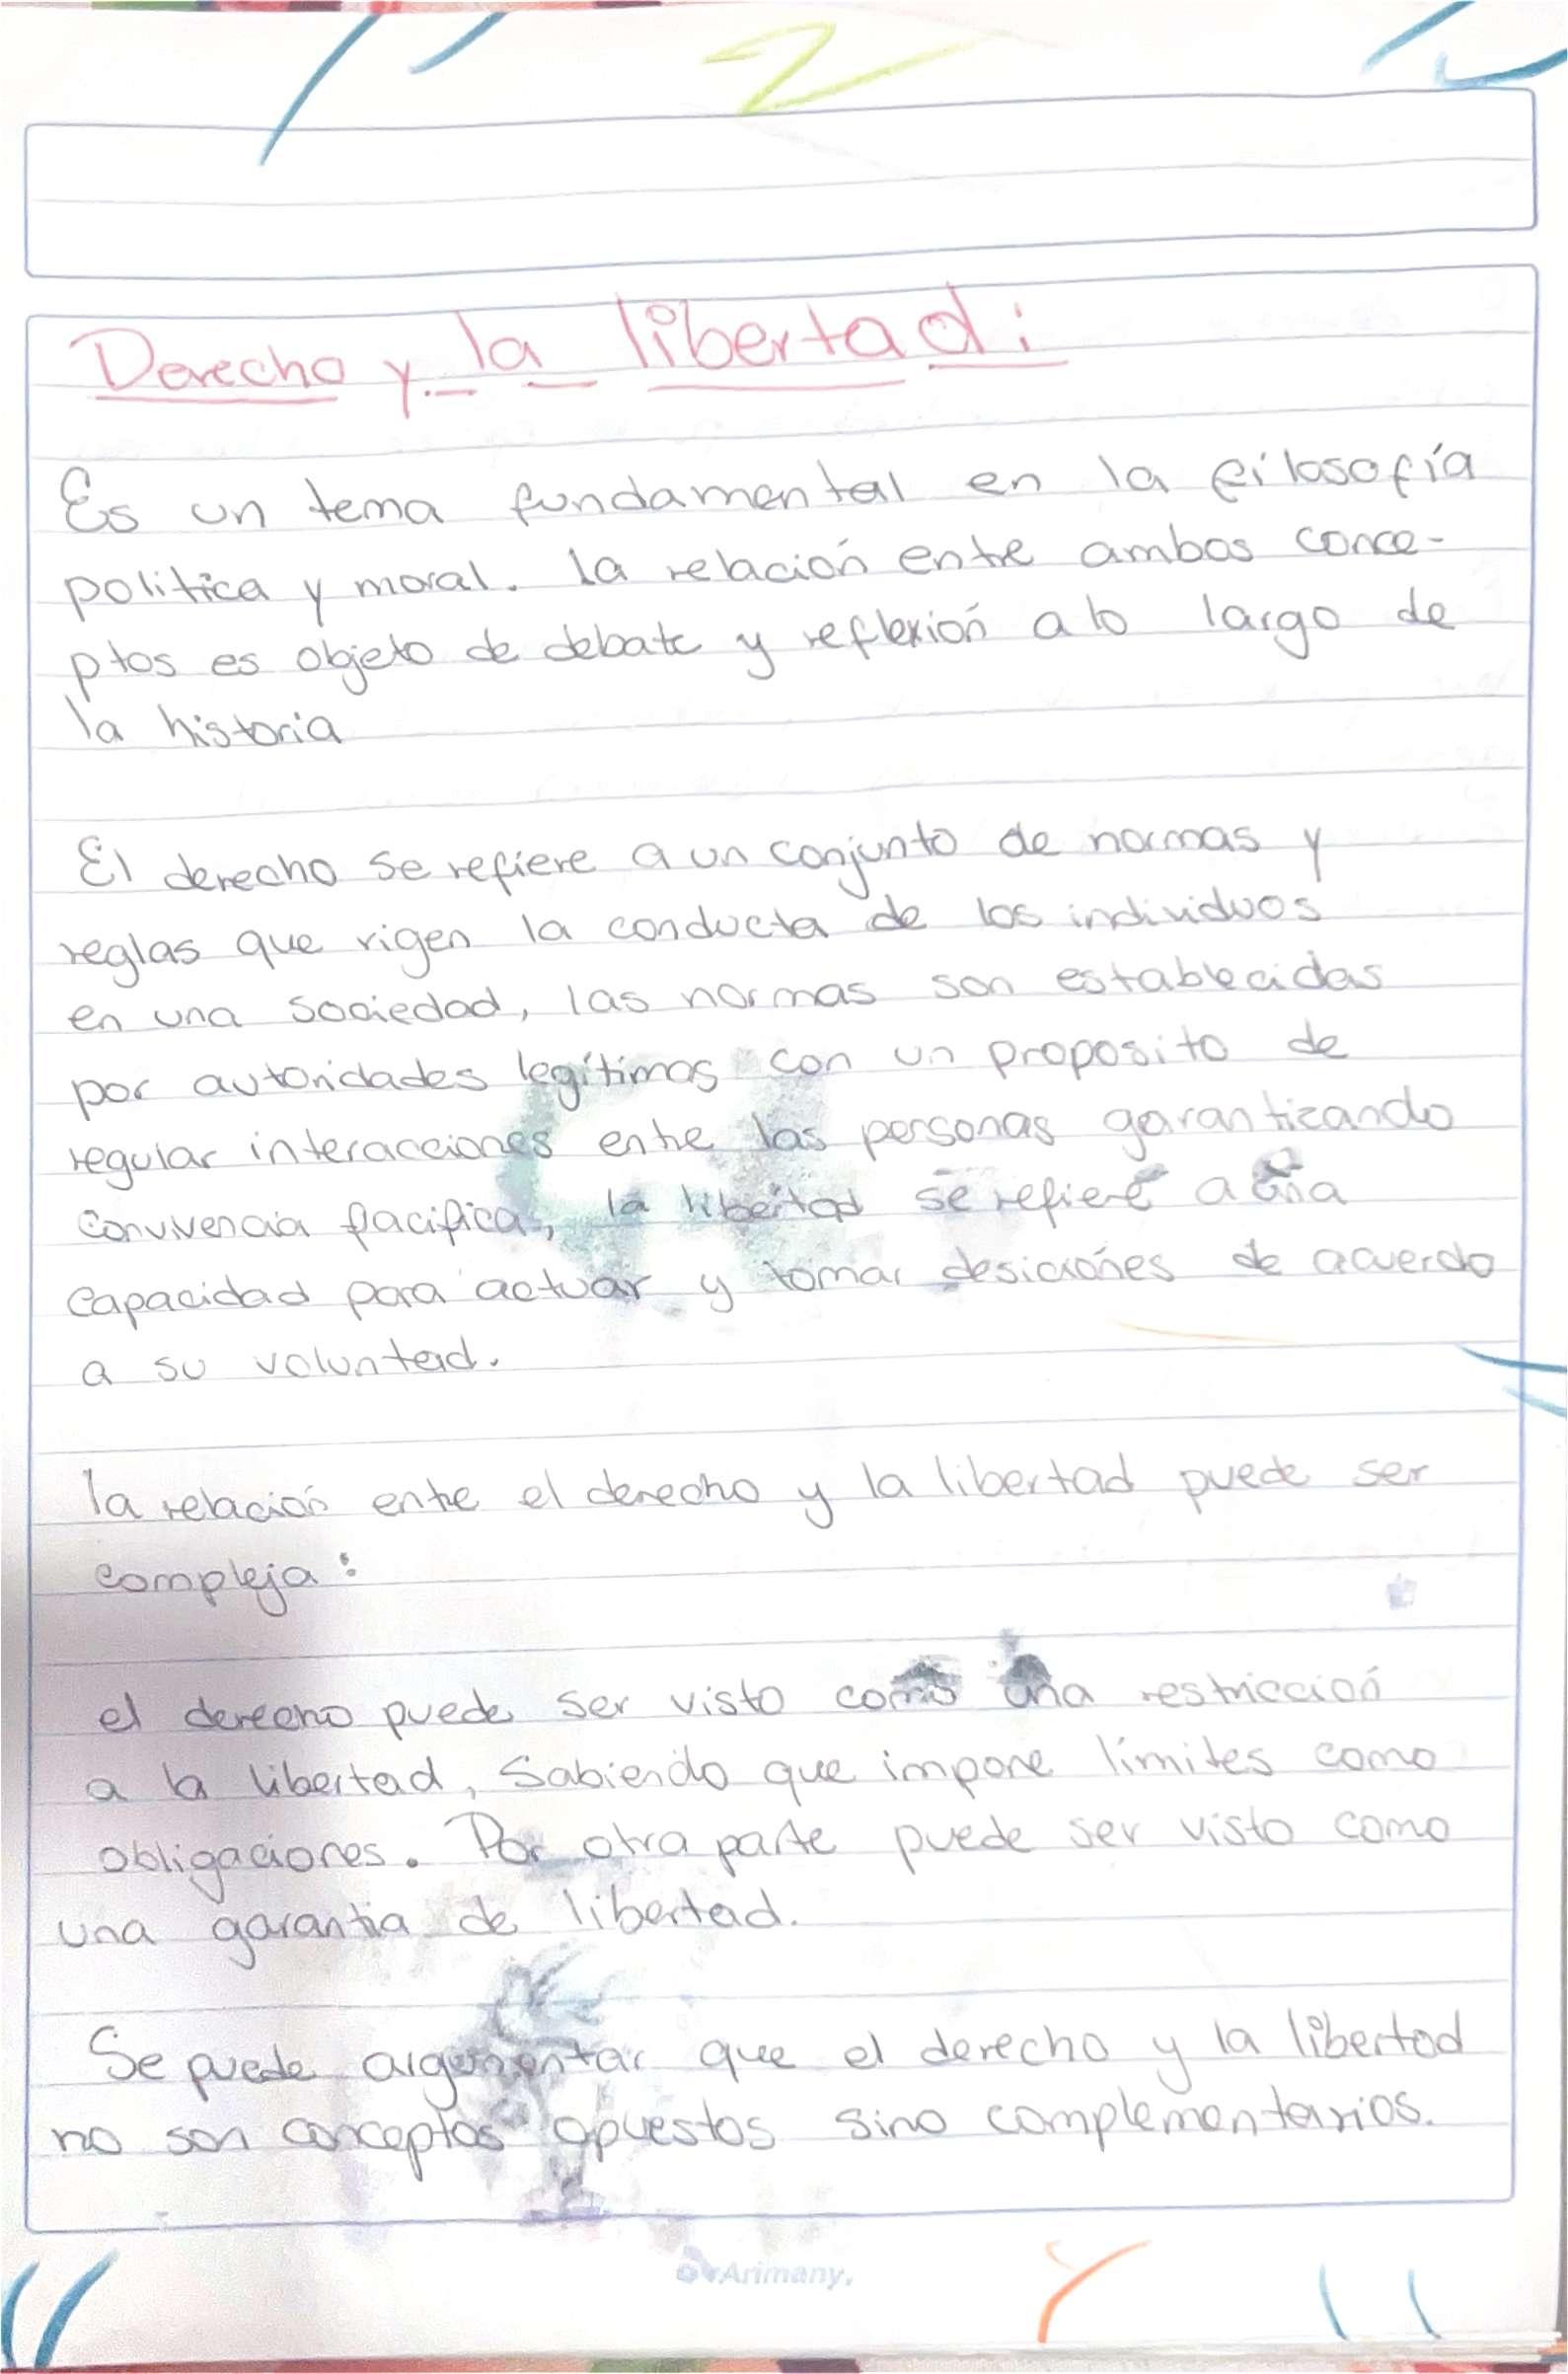 Derecho y la libertad:
Es un tema fundamental en la filosofía
politica y moral. la relación entre ambos conce-
ptos es objeto de debate y reflexión a lo largo de
la historia
El derecho se refiere a un conjunto de normas y
reglas que rigen la conducta de los individuos
en una sociedad, las normas son establecidas
por autoridades legítimas con un proposito de
regular interacciones entre las personas garantizando
convivencia pacifica, la libertad se refiere a una
capacidad para actuar y tomar desiciones de acuerdo
a su voluntad.
la relación entre el derecho y la libertad puede ser
compleja:
el derecho puede ser visto como una restricción
a la libertad, Sabiendo que impone límites como
obligaciones. Por otra parte puede ser visto como
una garantia de libertad.
Se puede argumentar que el derecho y la libertad
no son conceptos opuestos sino complementarios.
Arimany.